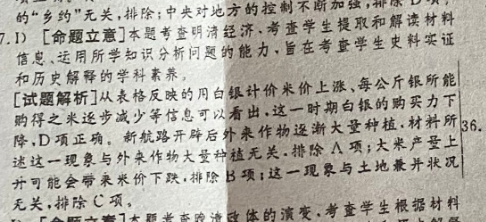 的“乡约”无关,排除;中央对地方的控制不断加强,排除D项。
7.D 【命题立意】本题考查明清经济,考查学生提取和解读材料
信息、运用所学知识分析问题的能力,旨在考查学生史料实证
和历史解释的学科素养。
【试题解析】从表格反映的用白银计价米价上涨、每公斤银所能
购得之米逐步减少等信息可以看出,这一时期白银的购买力下
降,D项正确。新航路开辟后外来作物逐渐大量种植,材料所
述这一现象与外来作物大量种植无关,排除A项;大米产量上
升可能会带来米价下跌,排除B项;这一现象与土地兼并状况
无关,排除C项。
36.
【命题立意】本题考查 政体的演变,考查学生根据材料